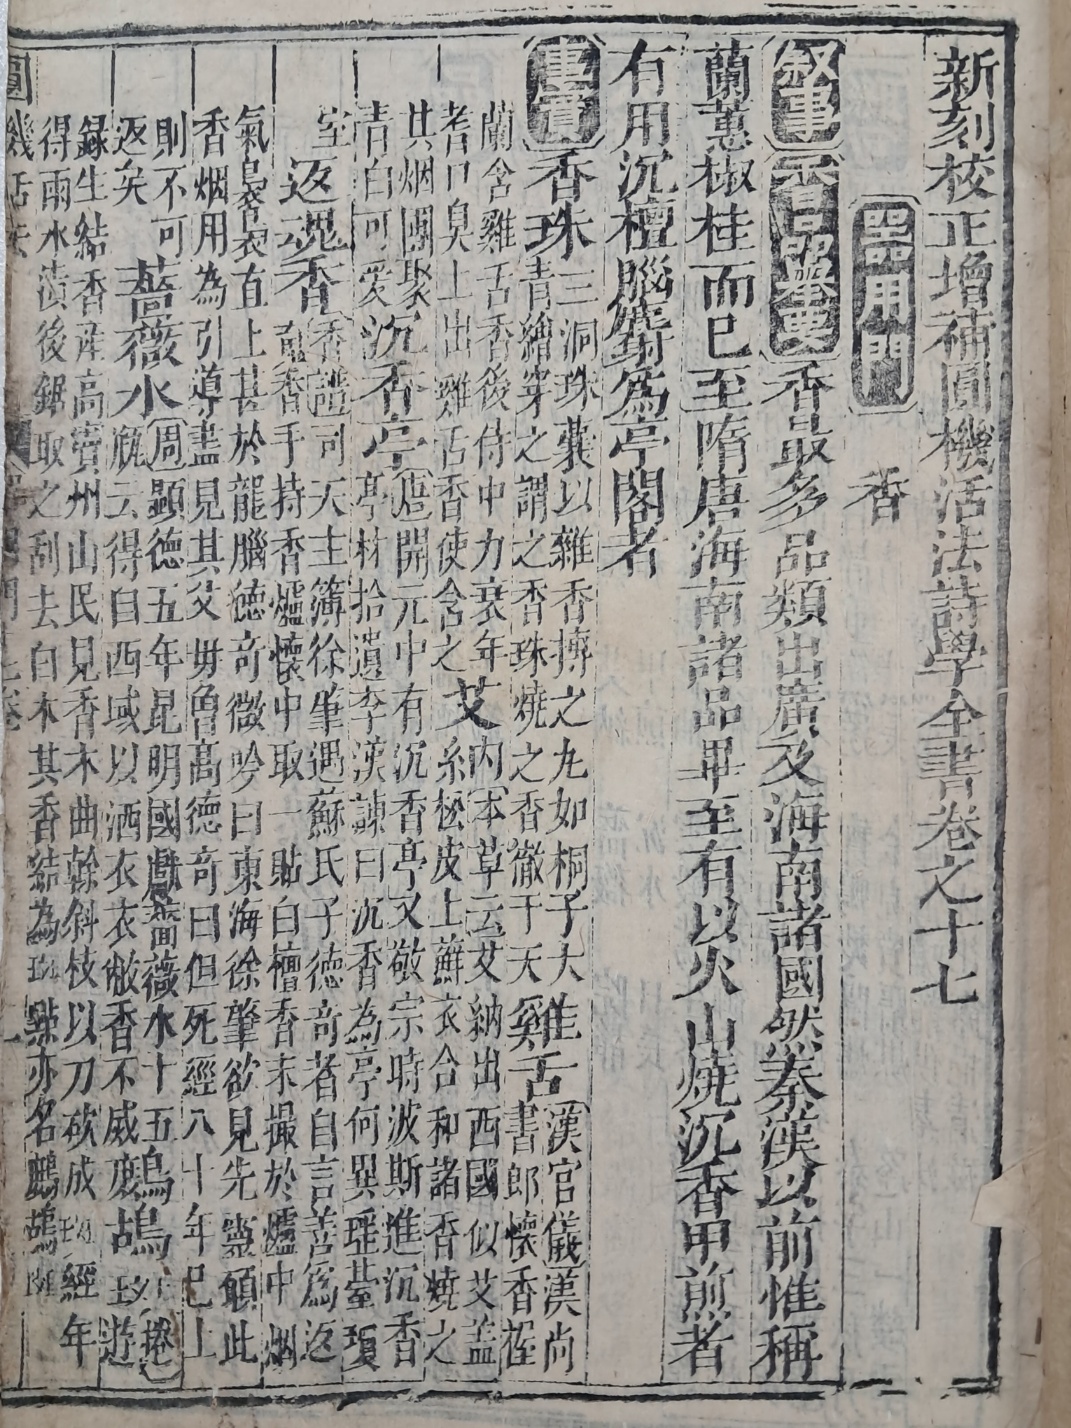 新刻校正增補圓機活法詩學全書卷之十七
器用門　香
叙事　品彙要　香最多品類出廣及海南諸國然秦漢以前惟稱
蘭蕙椒桂而已至隋唐海南諸品畢至有以火山燒沉香甲煎者
有用沉檀腦麝為亭閣者
事實　香珠　三洞珠囊以雜香擣之丸如桐子大
青繒穿之謂之香珠燒之香徹于天　雞舌　漢官儀漢尚
書郎懷香握
蘭含雞舌香後侍中刀衰年
耆口臭上出雞舌香使含之　艾　內　本草云艾納出西國似艾蓋
系松皮上蘚衣合和諸香燒之
其烟團聚
青白可愛　沉香亭　唐開元中有沉香亭又敬宗時波斯進沉香
亭材拾遺李漢諫曰沉香為亭何異瑤臺瓊
室　返魂香　香譜司天主簿徐肇遇蘇氏子德哥者自言善為返
魂香手持香爐懷中取一貼白檀香末撮於爐中烟
氣裊裊直上甚於龍腦德哥微吟曰東海徐肇欲見先靈願此
香烟用為引導盡見其父母曾高德哥曰但死經八十年已上
則不可
返矣　薔薇水　周顯德五年昆明國獻薔薇水十五
瓶云得自西域以洒衣衣敝香不滅　鷓鴣　游
錄生結香產高竇州山民見香木曲幹斜枝以刀砍成　經年
得雨水漬後鋸取之刮去白木其香結為斑點亦名鷓鴣斑
圓機活法